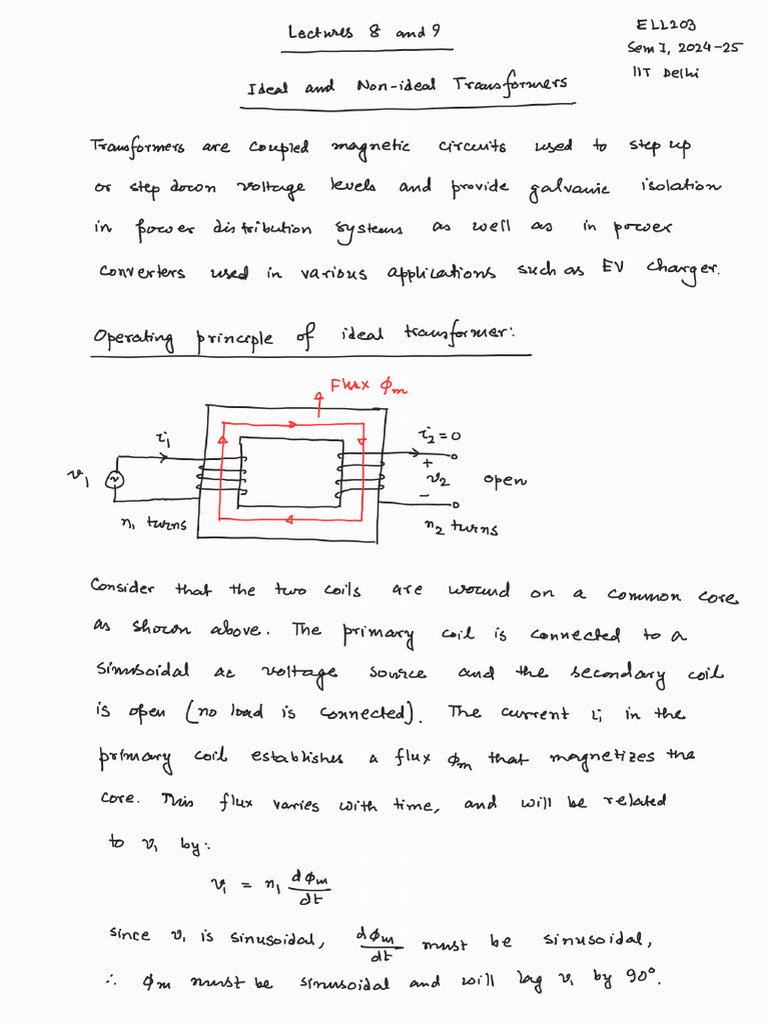 Lectures 8 and 9
ELL203
Sem I, 2024-25
IIT Delhi
Ideal and Non-ideal Transformers
Transformers are coupled magnetic circuits used to step up
or step down voltage levels and provide galvanic isolation
in power distribution systems as well as in power
converters used in various applications such as EV charger.
Operating principle of ideal transformer:
Flux ϕm
i1
i2 = 0
v1
+
v2
-
open
n1 turns
n2 turns
Consider that the two coils are wound on a common core
as shown above. The primary coil is connected to a
sinusoidal ac voltage source and the secondary coil
is open (no load is connected). The current i1 in the
primary coil establishes a flux ϕm that magnetizes the
core. This flux varies with time, and will be related
to v1 by:
v1 = n1 dϕm/dt
since v1 is sinusoidal, dϕm/dt must be sinusoidal,
∴ ϕm must be sinusoidal and will lag v1 by 90°.